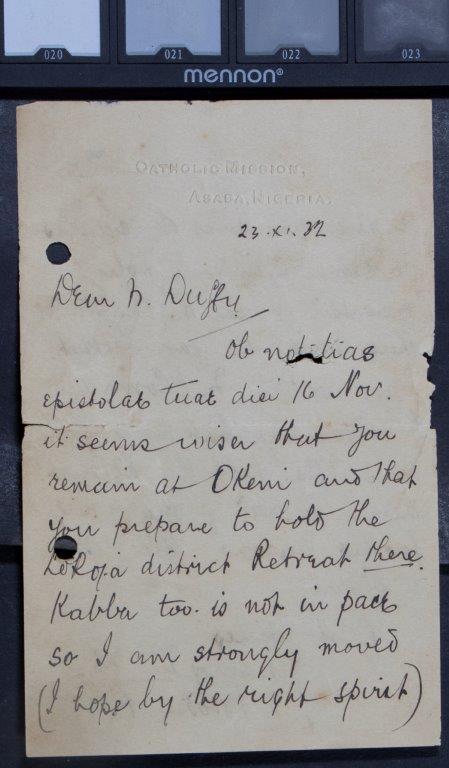 020 021 022 023
mennon®
CATHOLIC MISSION,
ASABA, NIGERIA.
23.XI.32
Dear Fr. Duffy
Ob notitias
epistolae tuae diei 16 Nov.
it seems wiser that you
remain at Okeni and that
you prepare to hold the
Lokoja district Retreat there.
Kabba too. is not in pace
so I am strongly moved
(I hope by the right spirit)